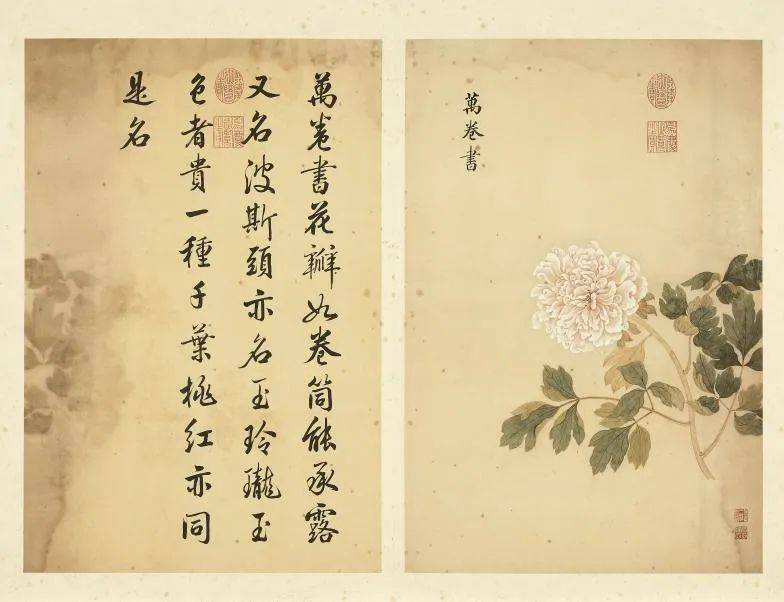 萬卷書
萬卷書花瓣如卷筒能承露
又名波斯頭亦名玉玲瓏玉
色者貴一種千葉桃紅亦同
是名